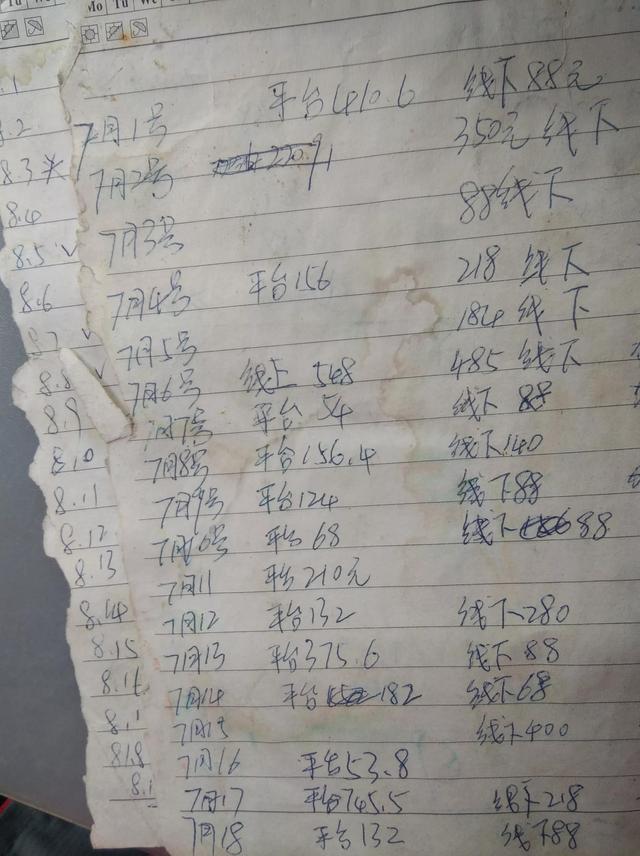 Tu We
Mo Tu We
平台410.6 线下88元
7月1号 350元线下
7月2号
7月3号 88线下
7月4号 平台156 218 线下
7月5号 184 线下
7月6号 线上 548 485 线下
7号 平台 54 线下 88
7月8号 平台156.4 线下140
7月9号 平台124 线下88
7月10号 平台 68 线下 88
7月11 平台210元
7月12 平台132 线下280
7月13 平台375.6 线下 88
7月14 平台 182 线下68
7月15 线下400
7月16 平台53.8
7月17 平台745.5 线下218
7月18 平台132 线下88
8.3
8.4
8.5 ✓
8.6
8.8 ✓
8.9
8.10
8.11
8.12
8.13
8.14
8.15
8.16
8.18